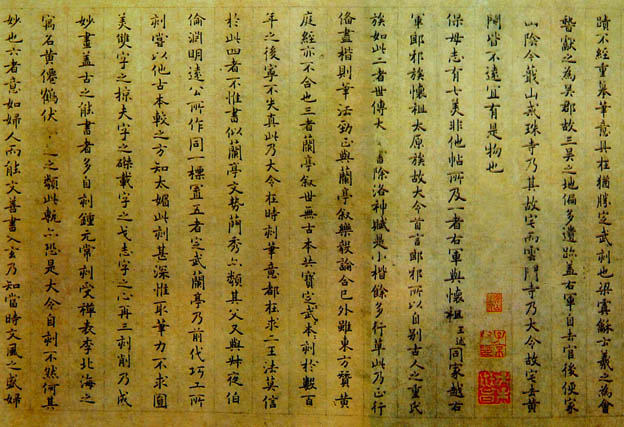 蹟不經重摹筆意具在猶勝定武刻也梁虞龢云羲之為會
稽獻之為吳郡故三吳之地偏多遺跡蓋右軍自去官後便家
山陰今蕺山戒珠寺乃其故宅而雲門寺乃大令故宅去黃
閍皆不遠宜有是物也
保母志有七美非他帖所及一者右軍與懷祖王述同家越右
軍郎邪族懷祖太原族故大令首言郎邪所以自別古人之重氏
族如此二者世傳大書除洛神賦是小楷餘多行草此乃正行
俻盡楷則筆法勁正與蘭亭叙樂毅論合已外雖東方贊黃
庭經亦不合也三者蘭亭叙世無古本共寶定武本刻於數百
年之後寧不失真此乃大令在時刻筆意都在求二王法莫信
於此四者不惟書似蘭亭文勢蕑秀亦類其父又與叔夜伯
倫淵明遠公所作同一標置五者定武蘭亭乃前代巧工所
刻嘗以他古本較之方知太媚此刻甚深惟取筆力不求圓
美雙字之掠夫字之磔載字之戈志字之心再三刻削乃成
妙畫蓋古之能書者多自刻鍾元常刻受禪表李北海之
寫石黃僊鶴伏之類此甎亦恐是大令自刻不然何其
妙也六者意如婦人而能文善書入玄乃知當時文風之盛婦